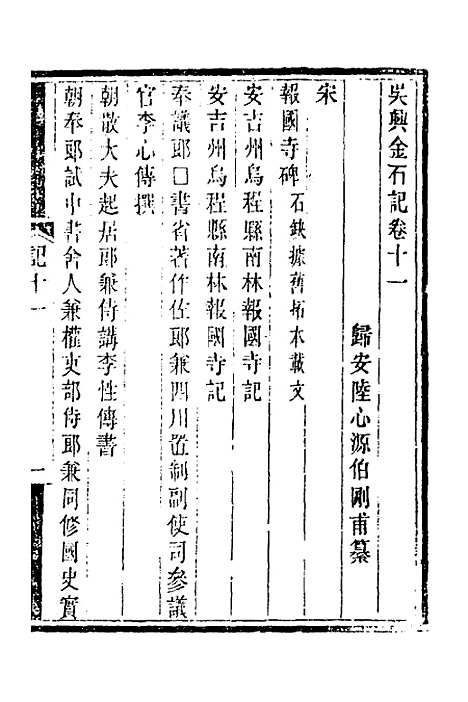 吳興金石記卷十一
歸安陸心源伯剛甫纂
宋
報國寺碑石鈌據舊拓本載文
安吉州烏程縣南林報國寺記
安吉州烏程縣南林報國寺記
奉議郎囗書省著作佐郎兼四川置制副使司參議
官李心傳撰
朝散大夫起居郎兼侍講李性傳書
朝奉郎試中書舍人兼權吏部侍郎兼同修國史實
記十一
一